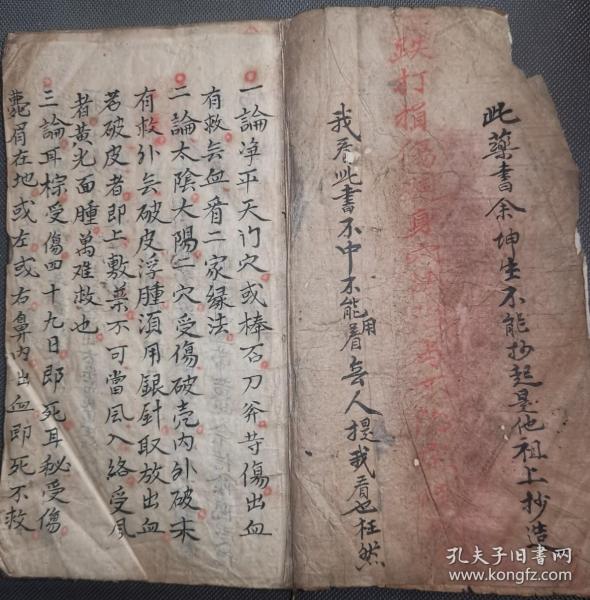 此藥書余坤生不能抄起是他祖上抄造
跌打損傷
我看此書不中不能看無人提我看也枉然
用
一論淨平天門穴或棒石刀斧等傷出血
有救無血看二家緣法
二論太陰太陽二穴受傷破壳內外破未
有救外無破皮浮腫須用銀針取放出血
若破皮者即上敷藥不可當風入絡受風
者黃光面腫萬難救也
三論耳棕受傷四十九日即死耳秘受傷
眉在地或左或右鼻內出血即死不救
孔夫子旧书网
www.kongfz.com